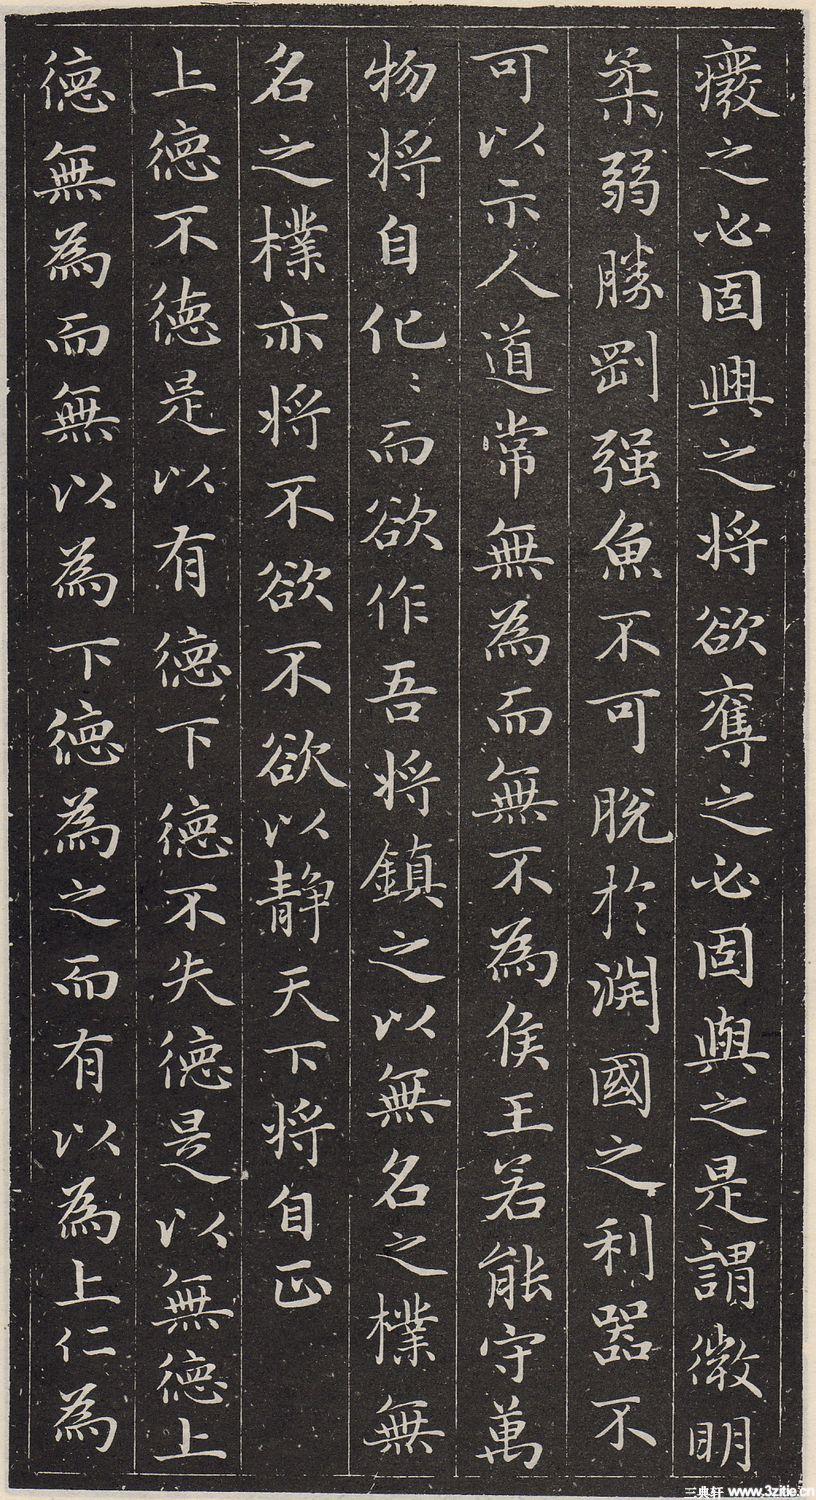 癈之必固興之将欲奪之必固與之是謂微明
柔弱勝剛强魚不可脱於淵國之利器不
可以示人道常無為而無不為侯王若能守萬
物将自化〻而欲作吾将鎮之以無名之樸無
名之樸亦将不欲不欲以静天下将自正
上德不德是以有德下德不失德是以無德上
德無為而無以為下德為之而有以為上仁為
三典轩 www.3zitie.cn